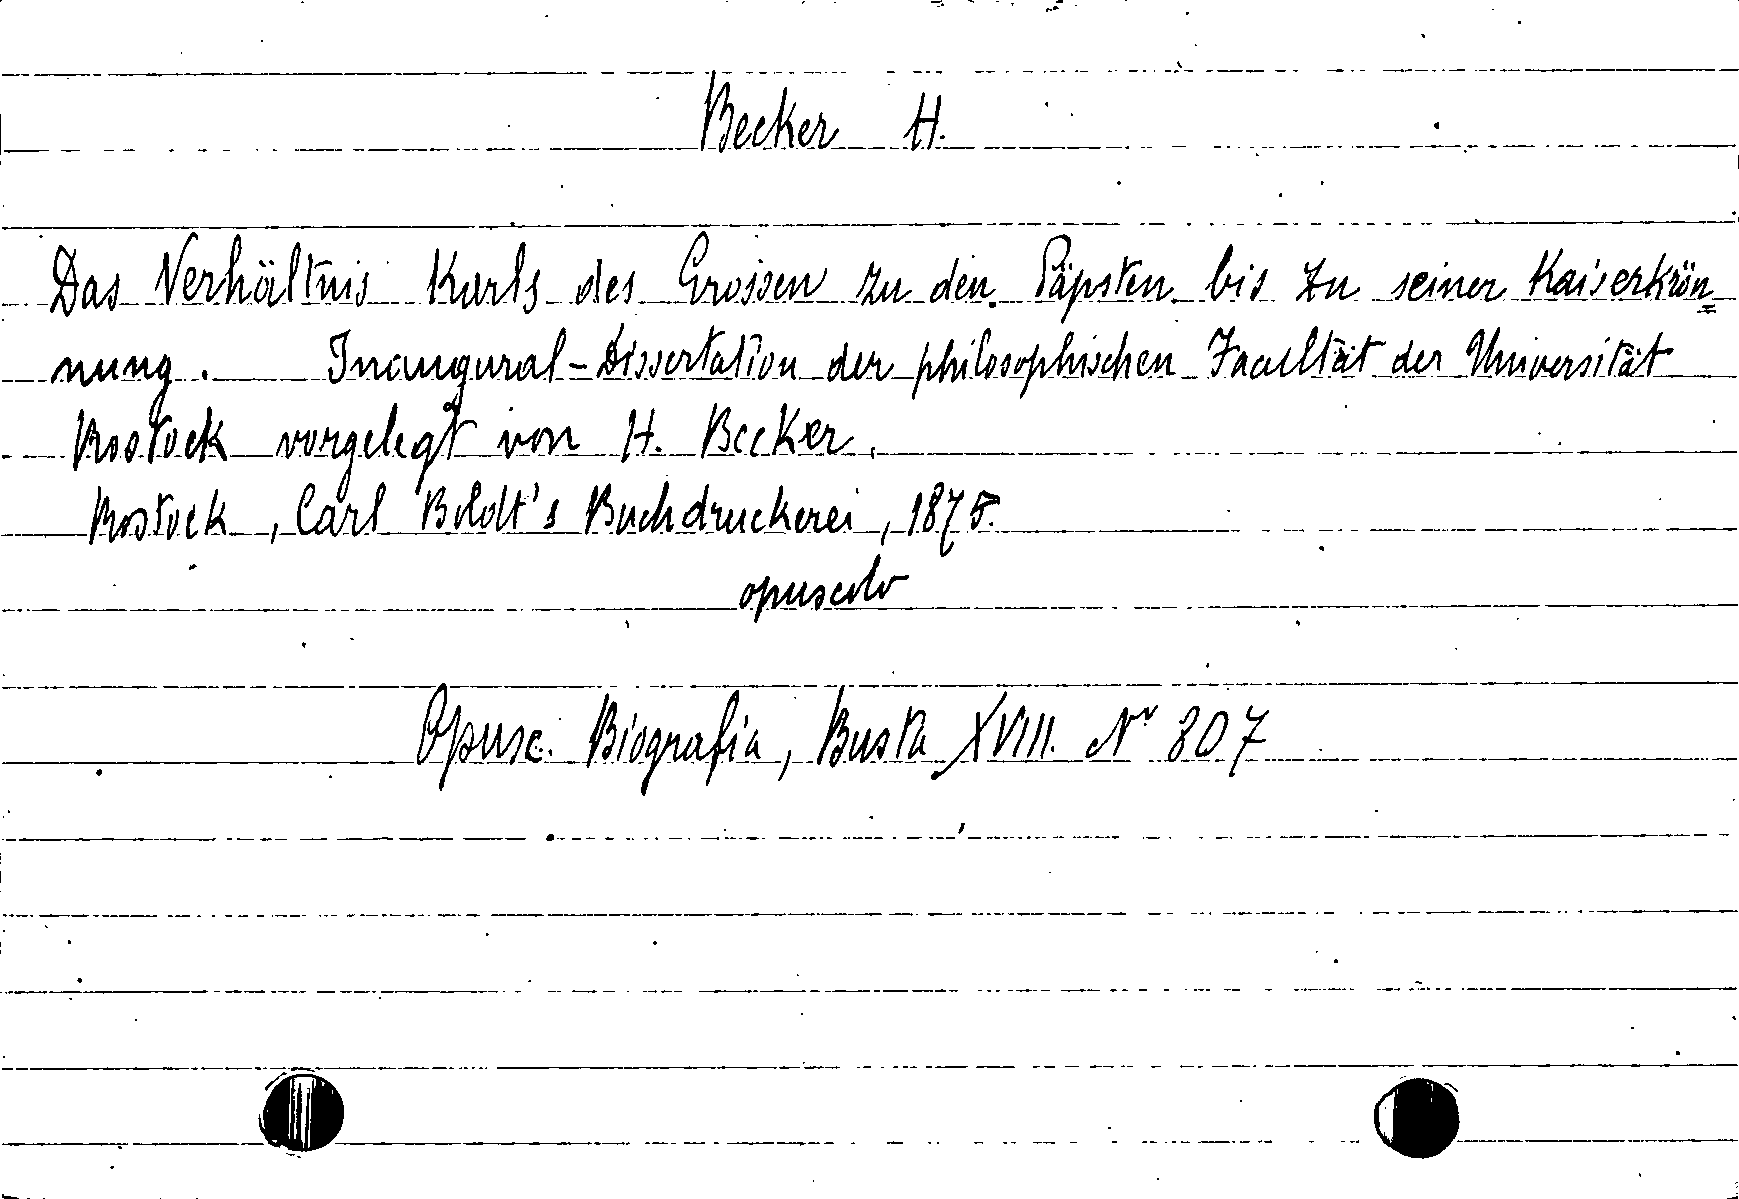 Becker H.
Das Verhältnis Karls des Grossen zu den Päpsten bis zu seiner Kaiserkrön=
nung. Inaugural-Dissertation der philosophischen Facultät der Universität
Rostock vorgelegt von H. Becker.
Rostock, Carl Boldt's Buchdruckerei, 1875.
opuscolo
Opusc. Biografia, Busta XVIII. Nr 807